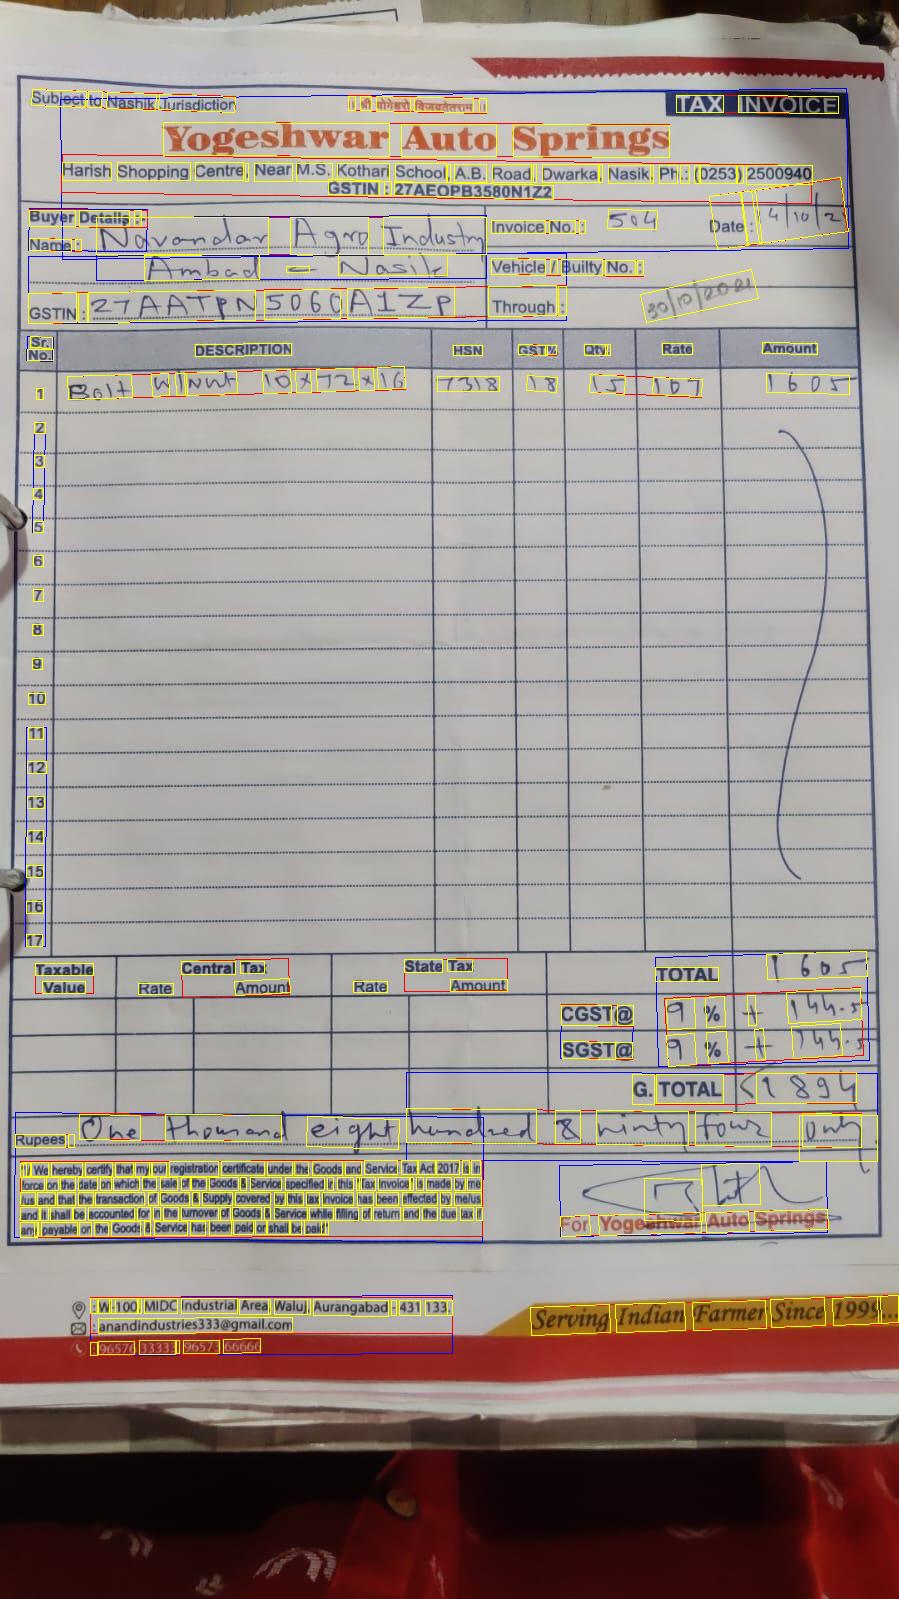 Subject to Nashik Jurisdiction
।। श्री योगेश्वरो विजयतेतराम ।।
TAX INVOICE
Yogeshwar Auto Springs
Harish Shopping Centre, Near M.S. Kothari School, A.B. Road, Dwarka, Nasik, Ph.: (0253) 2500940
GSTIN : 27AEOPB3580N1Z2
Buyer Details :-
Name : Navandar Agro Industry
Ambad - Nasik
GSTIN : 27AATPN5060A1ZP
Invoice No. : 504
Date : 4/10/2
Vehicle / Builty No. :
Through : 30/10/2021
Sr. No. DESCRIPTION HSN GST% Qty. Rate Amount
1 Bolt W/Nut 10x72x16 7318 18 15 107 1605
2
3
4
5
6
7
8
9
10
11
12
13
14
15
16
17
Taxable Value
Central Tax
Rate Amount
State Tax
Rate Amount
TOTAL 1605
CGST@ 9 % + 144.5
SGST@ 9 % + 144.5
G. TOTAL 1894
Rupees : One thousand eight hundred & ninty four only
"I / We hereby certify that my our registration certificate under the Goods and Service Tax Act 2017 is in
force on the date on which the sale of the Goods & Service specified in this "Tax Invoice" is made by me
/us and that the transaction of Goods & Supply covered by this tax invoice has been effected by me/us
and it shall be accounted for in the turnover of Goods & Service while filling of return and the due tax if
any payable on the Goods & Service has been paid or shall be paid"
For Yogeshwar Auto Springs
: W-100, MIDC Industrial Area, Waluj, Aurangabad - 431 133.
: anandindustries333@gmail.com
: 96576 33333, 96573 66666
Serving Indian Farmer Since 1999...